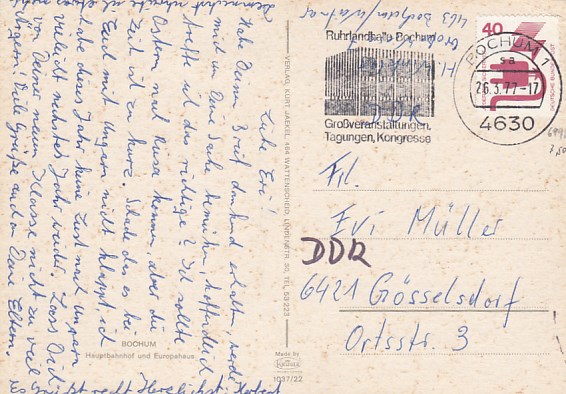 Liebe Evi!
Habe Deinen Brief dankend erhalten, werde
mich um Deine Sache bemühen, hoffentlich
treffe ich das richtige? Ich sollte
Ostern nach Riesa kommen, aber die
Zeit ist zu kurz. Schade das es bei
Euch mit Ungarn nicht klappt, ich
habe dieses Jahr keine Lust nach Ungarn
vielleicht nächstes Jahr wieder. Lass Dich
von Deiner neuen Klasse nicht zu viel
ärgern! Viele Grüße auch an Deine Eltern.
Es grüßt recht Herzlichst Herbert
BOCHUM
Hauptbahnhof und Europahaus
VERLAG KURT JAEKEL, 464 WATTENSCHEID, TEL. 53-223
Made by
Krüger
1037/22
463 Bochum
Ruhrlandhalle Bochum
Großveranstaltungen,
Tagungen, Kongresse
BOCHUM 1
sa
26.3.77-17
4630
40
DEUTSCHE BUNDESPOST
DDR
Frl.
Evi Müller
DDR
6421 Gösselsdorf
Ortsstr. 3
7,50